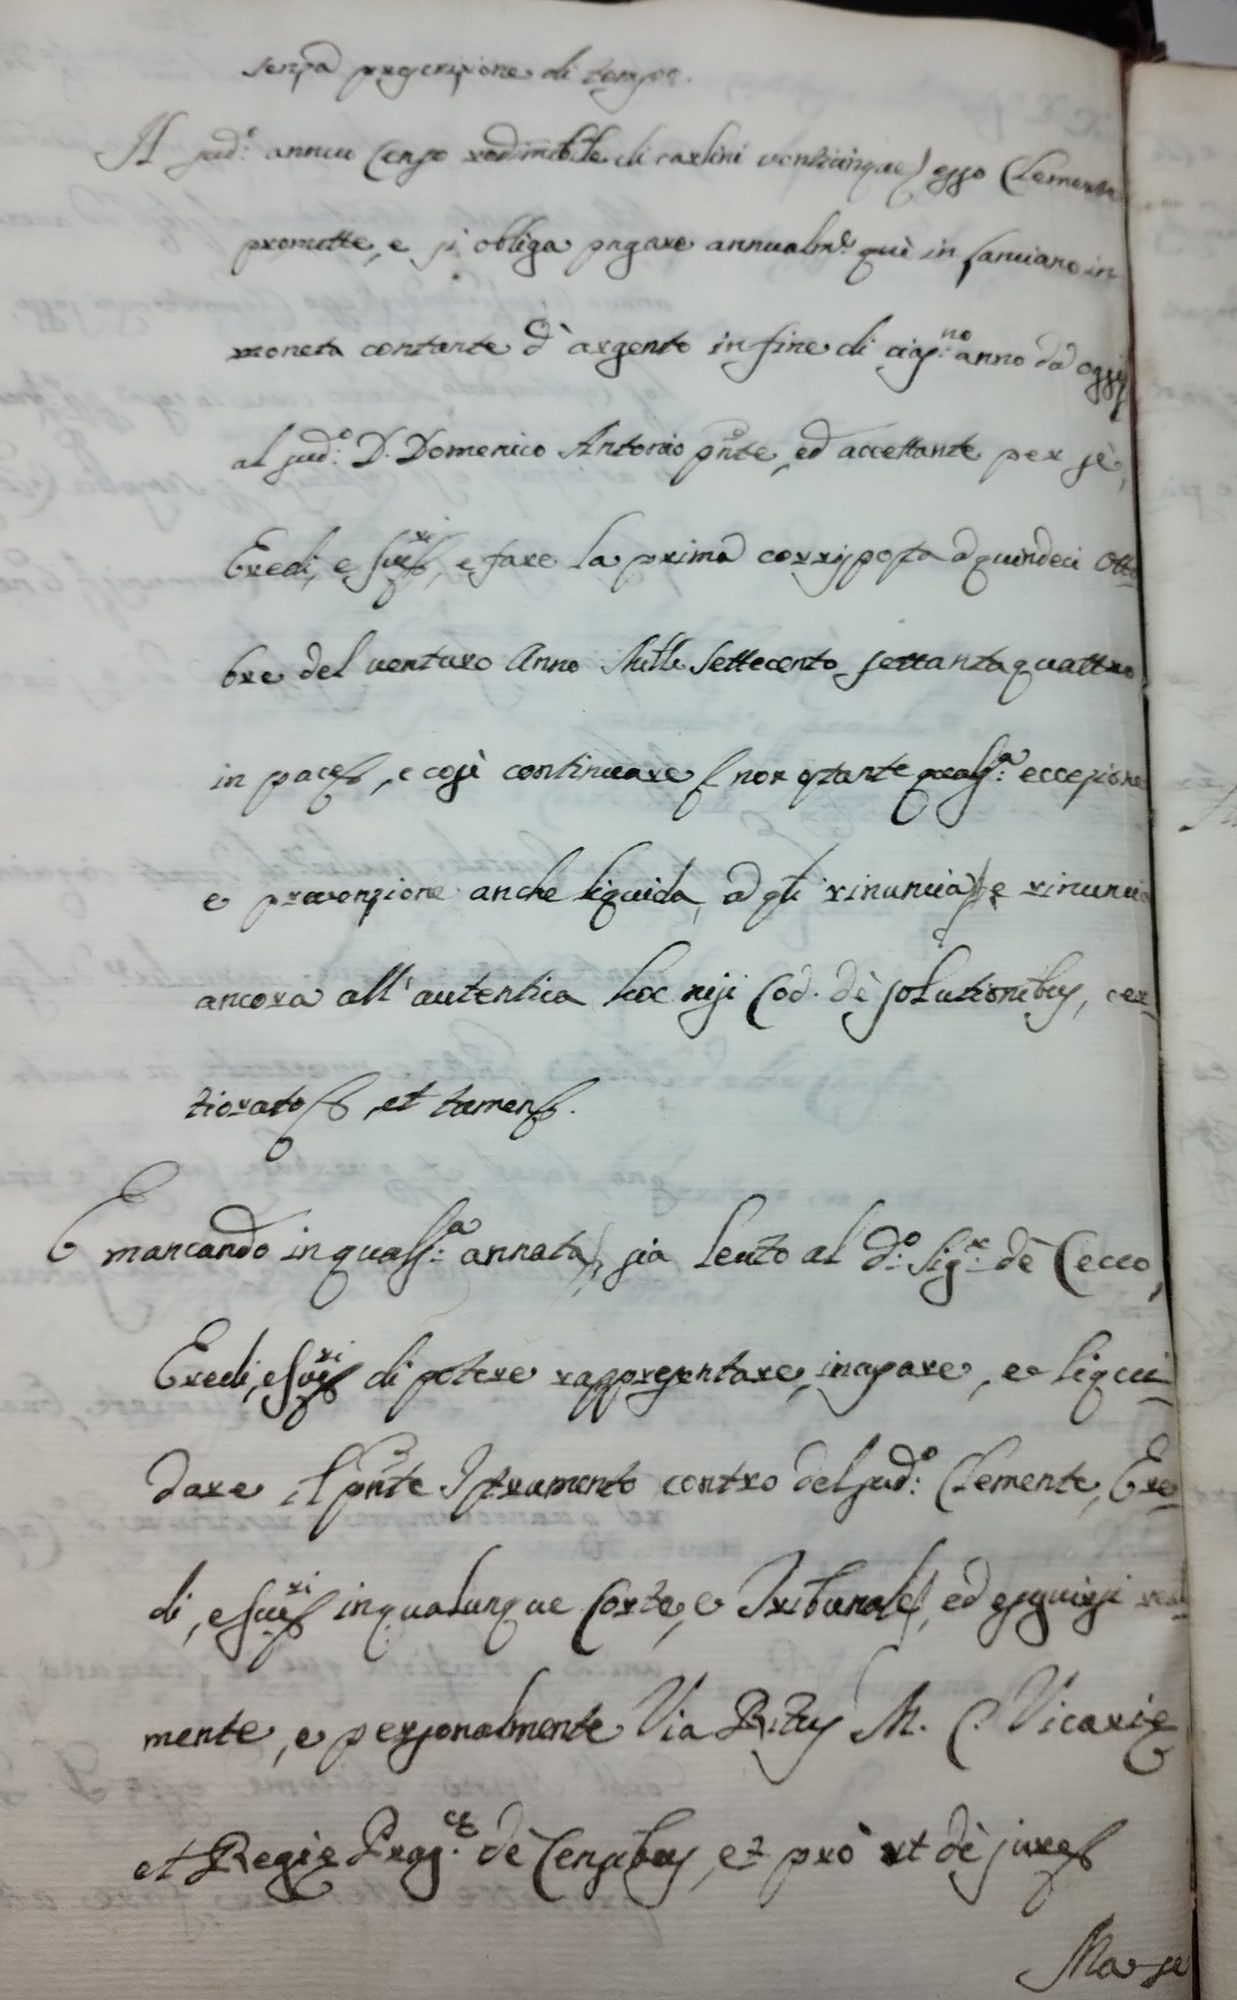 senza prescrizione di tempo.
Il sud.o annuo Censo redimibile di carlini venticinque, esso Clemente
promette, e si obliga pagare annualm.e qui in Lanciano in
moneta contante d'argento in fine di cias.no anno da oggi
al sud.o D. Domenico Antonio pnte, ed accettante per sè,
Eredi, e Succ.ri, e fare la prima corrisposta a quindeci Otto-
bre del venturo Anno Mille Settecento settanta quattro
in pace, e così continuare non ostante quals.a eccezione
e prevenzione anche liquida, a qli rinuncia, e rinuncia
ancora all'autentica hoc nisi Cod. dè solutionibus, cer-
tiorato, et tamen.
E mancando in quals.a annata, sia lecito al d.o Sig.r dè Cecco,
Eredi, e Succ.ri di potere rappresentare, incusare, e liqui-
dare il pnte Istrumento contro del sud.o Clemente, Ere-
di, e Succ.ri in qualunque Corte, e Tribunale, ed eseguirsi real-
mente, e personalmente Via Ritus M. C. Vicarie
et Regie Prag.ce dè Censibus, et prò ut dè jure
Ma se